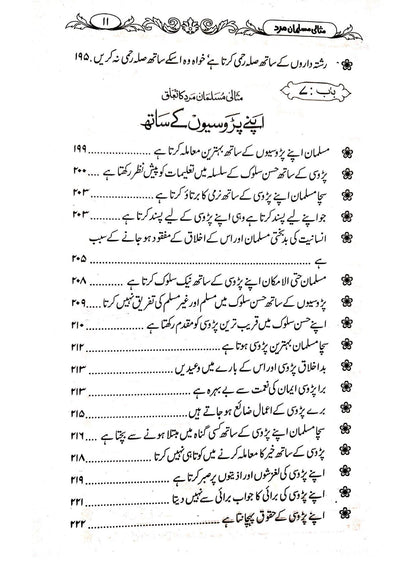 مثالی مسلمان مرد
۱۱
رشتہ داروں کے ساتھ صلہ رحمی کرتا ہے خواہ وہ اسکے ساتھ صلہ رحمی نہ کریں ۱۹۵
باب : ۷
مثالی مسلمان مرد کا تعلق
اپنے پڑوسیوں کے ساتھ
مسلمان اپنے پڑوسیوں کے ساتھ بہترین معاملہ کرتا ہے ۱۹۹
پڑوسی کے ساتھ حسن سلوک کے سلسلہ میں تعلیمات کو پیش نظر رکھتا ہے ۲۰۰
سچا مسلمان اپنے پڑوسی کے ساتھ نرمی کا برتاؤ کرتا ہے ۲۰۳
جو اپنے لیے پسند کرتا ہے وہی اپنے پڑوسی کے لیے پسند کرتا ہے ۲۰۳
انسانیت کی بدبختی مسلمان اور اس کے اخلاق کے مفقود ہو جانے کے سبب
ہے ۲۰۵
مسلمان حتی الامکان اپنے پڑوسی کے ساتھ نیک سلوک کرتا ہے ۲۰۸
پڑوسیوں کے ساتھ حسن سلوک میں مسلم اور غیر مسلم کی تفریق نہیں کرتا ۲۰۹
اپنے حسن سلوک میں قریب ترین پڑوسی کو مقدم رکھتا ہے ۲۱۰
سچا مسلمان بہترین پڑوسی ہوتا ہے ۲۱۲
بداخلاق پڑوسی اور اس کے بارے میں وعیدیں ۲۱۳
برا پڑوسی ایمان کی نعمت سے بے بہرہ ہے ۲۱۳
برے پڑوسی کے اعمال ضائع ہو جاتے ہیں ۲۱۵
سچا مسلمان اپنے پڑوسی کے ساتھ کسی گناہ میں مبتلا ہونے سے بچتا ہے ۲۱۶
پڑوسی کے ساتھ خیر کا معاملہ کرنے میں کوتاہی نہیں کرتا ۲۱۸
اپنے پڑوسی کی لغزشوں اور اذیتوں پر صبر کرتا ہے ۲۱۹
اپنے پڑوسی کی برائی کا جواب برائی سے نہیں دیتا ۲۲۱
اپنے پڑوسی کے حقوق پہچانتا ہے ۲۲۲